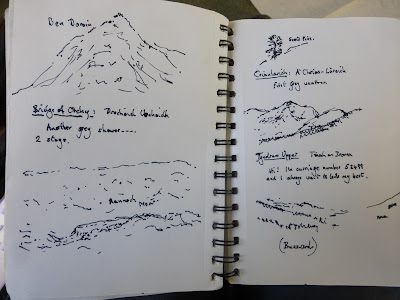 Ben Dorain
Bridge of Orchy: Drochaid Urchaidh
Another grey shower.....
2 stags.
Rannoch Moor
Scots Pine.
Crianlarich: A' Chrion-Làraich
First grey wagtail.
Tyndrum Upper Taigh an Droma
Hi! I'm carriage number 52499
and I always want to look my best.
(Buzzard)